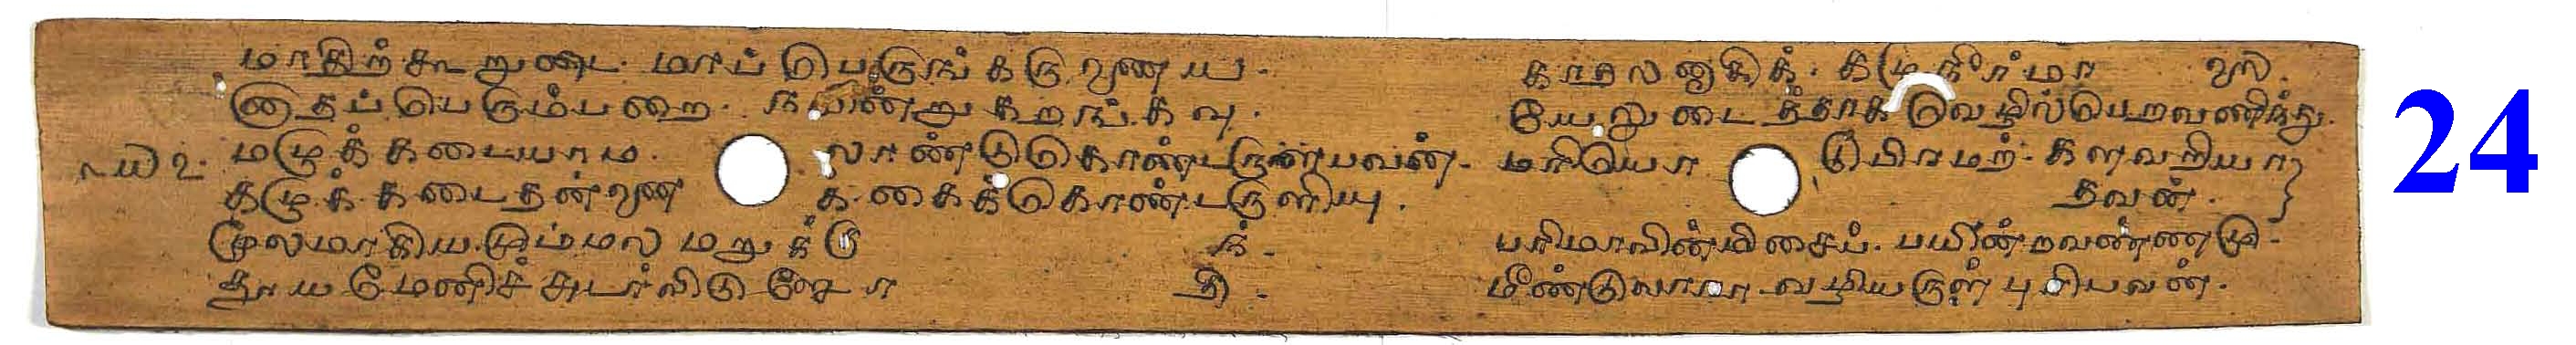 மாதிற் கூறுடை மாப் பெருங் கருணைய காதலனாகிக் கழுநீர்மா லை
னாதப் பெரும்பறை நவின்று கறங்கவு யேலுடைத்தாக வெழில்பெறவணிந்து
௰௨ மழுக்கடையாம லாண்டுகொண்டருள்பவன் மரியொ டுபிரமற் களவறியா
கழுக்கடைதன்னை க் கைக்கொண்டருளியு தவன்
மூலமாகிய மும்மல மறுக்கு ந் பரிமாவின்மிசைப் பயின்றவண்ணமு
தூயமேனிச் சுடர்விடு சோ தி மீண்டுவாரா வழியருள் புரிபவன்
24